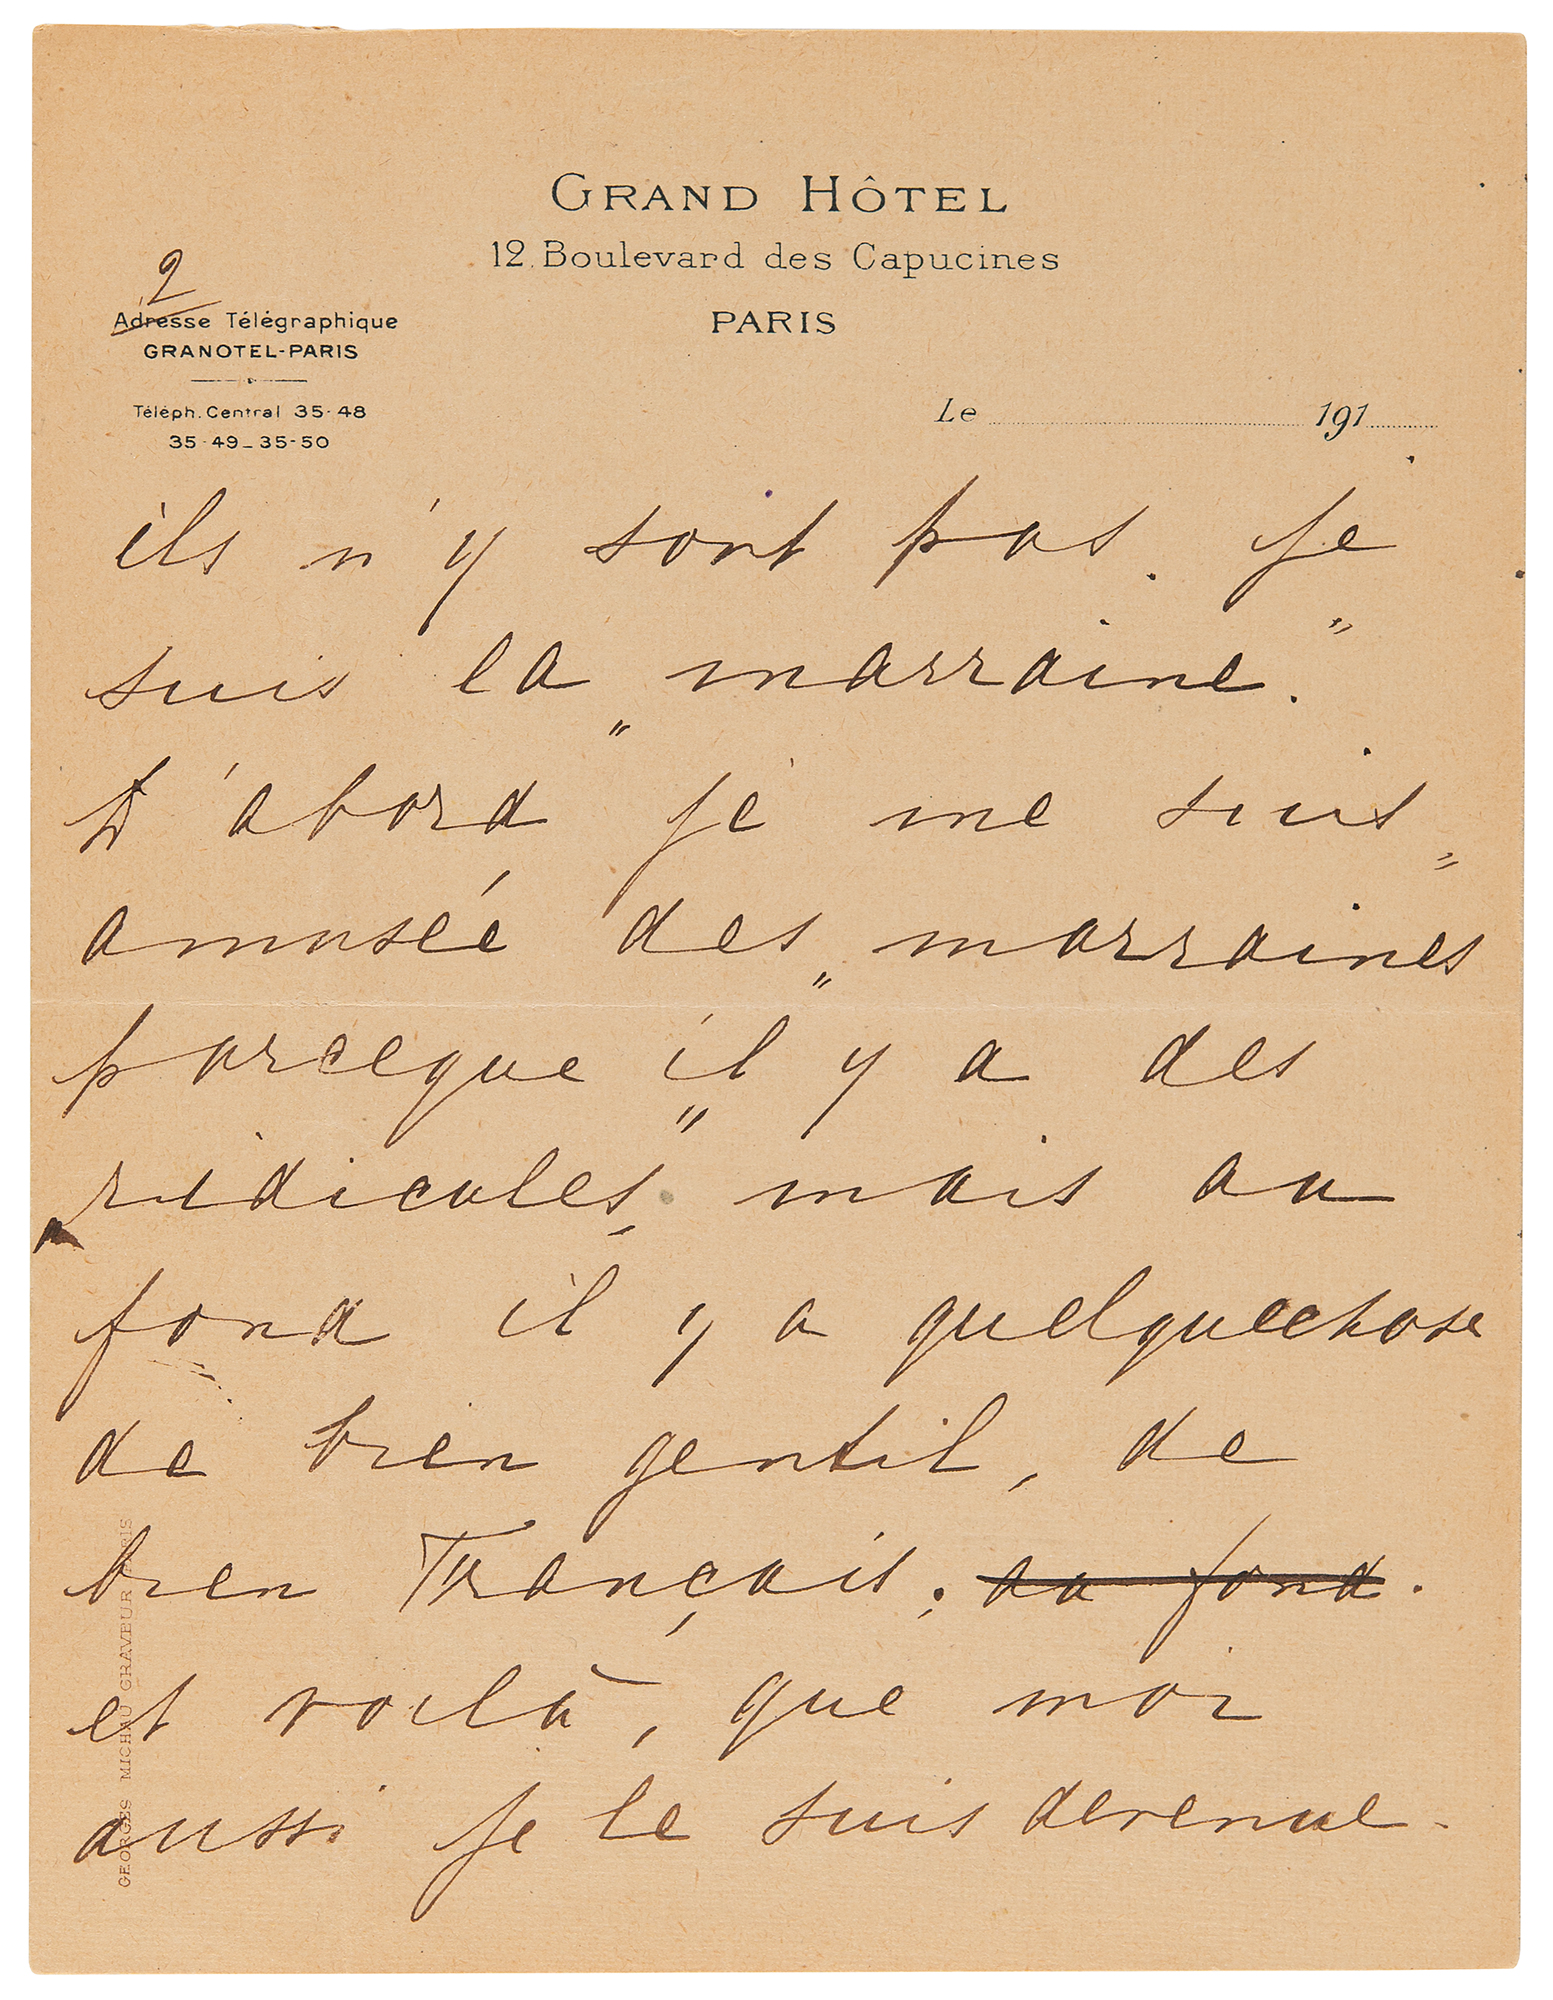 GRAND HÔTEL
12, Boulevard des Capucines
PARIS
2
Adresse Télégraphique
GRANOTEL-PARIS
Téléph. Central 35-48
35-49_35-50
Le 191
ils n'y sont pas. Je
suis la „marraine."
D'abord je me suis
amusée des „marraines"
parceque il y a des
„ridicules", mais au
fond il y a quelquechose
de bien gentil, de
bien Français; au fond.
et voilà, que moi
aussi je le suis devenue.
GEORGES MICHAU GRAVEUR PARIS